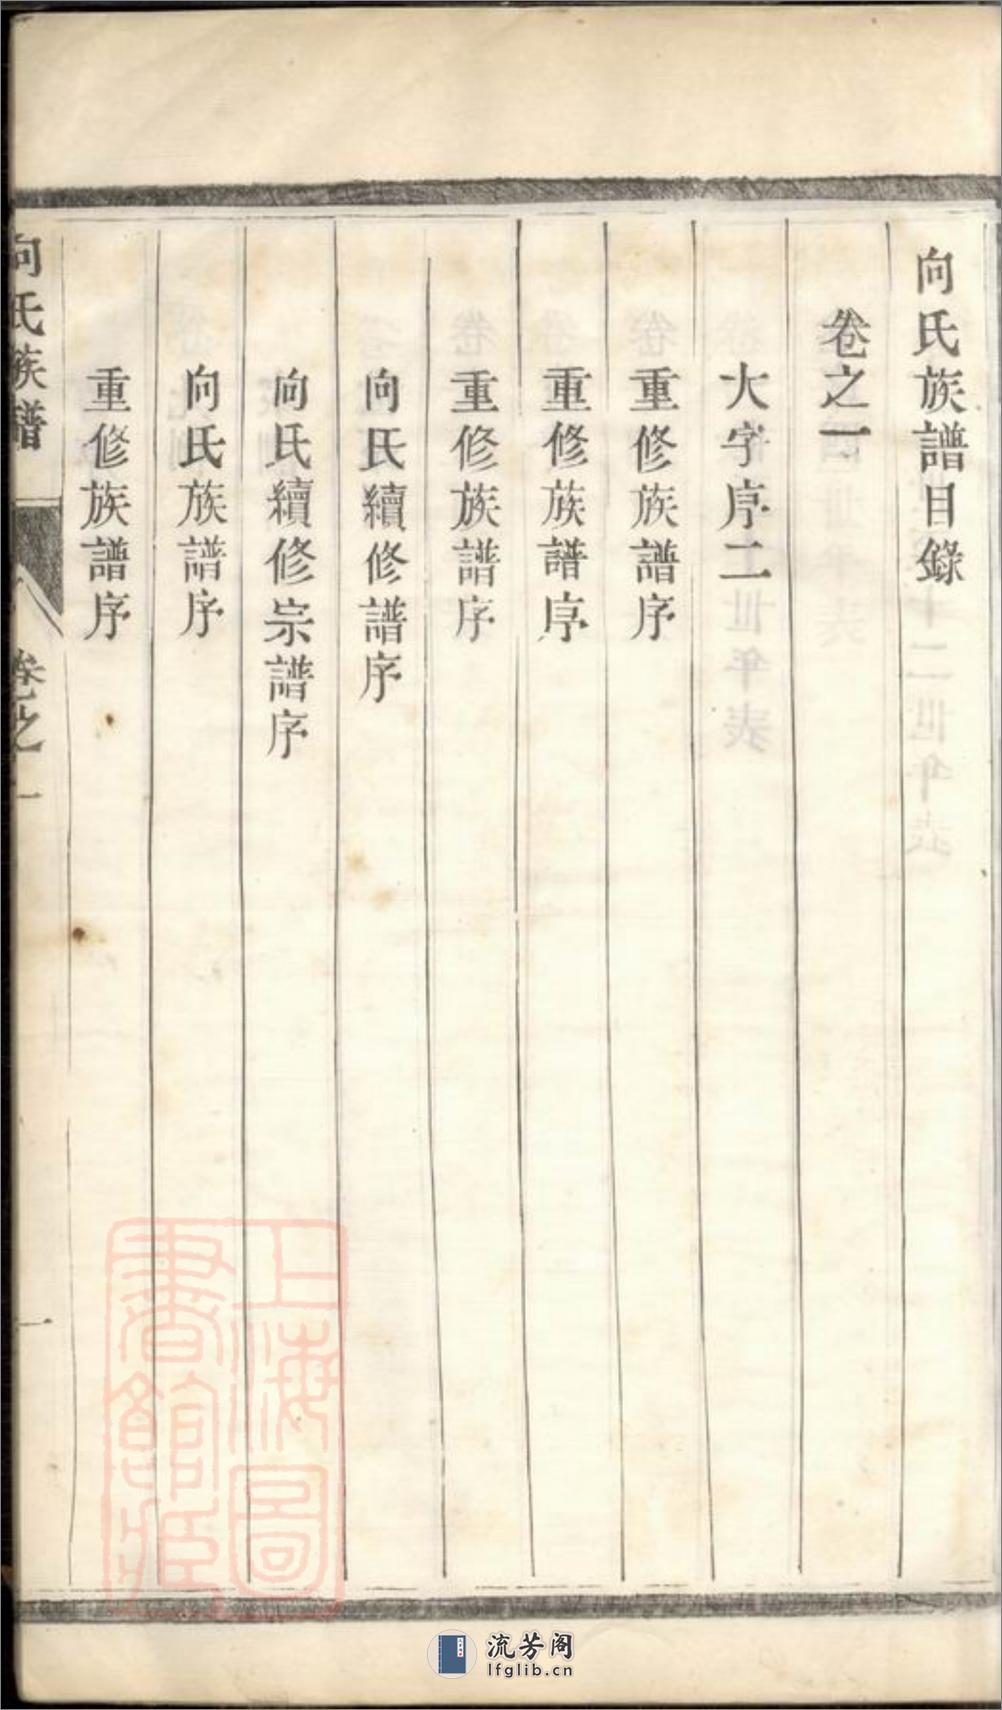 向氏族譜目錄
卷之一
大字序二
重修族譜序
重修族譜序
重修族譜序
向氏續修譜序
向氏續修宗譜序
向氏族譜序
重修族譜序
向氏族譜
卷之一
一
上海圖書館藏
流芳阁
lfglib.cn